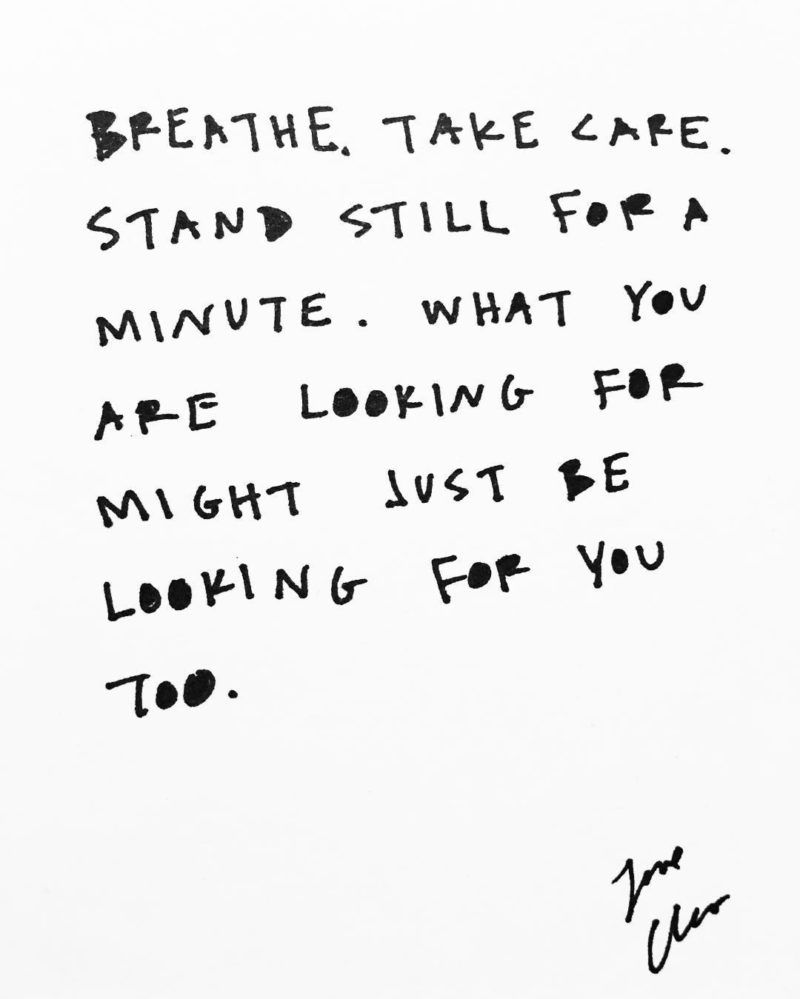 BREATHE. TAKE CARE.
STAND STILL FOR A
MINUTE. WHAT YOU
ARE LOOKING FOR
MIGHT JUST BE
LOOKING FOR YOU
TOO.
Love
Cleo